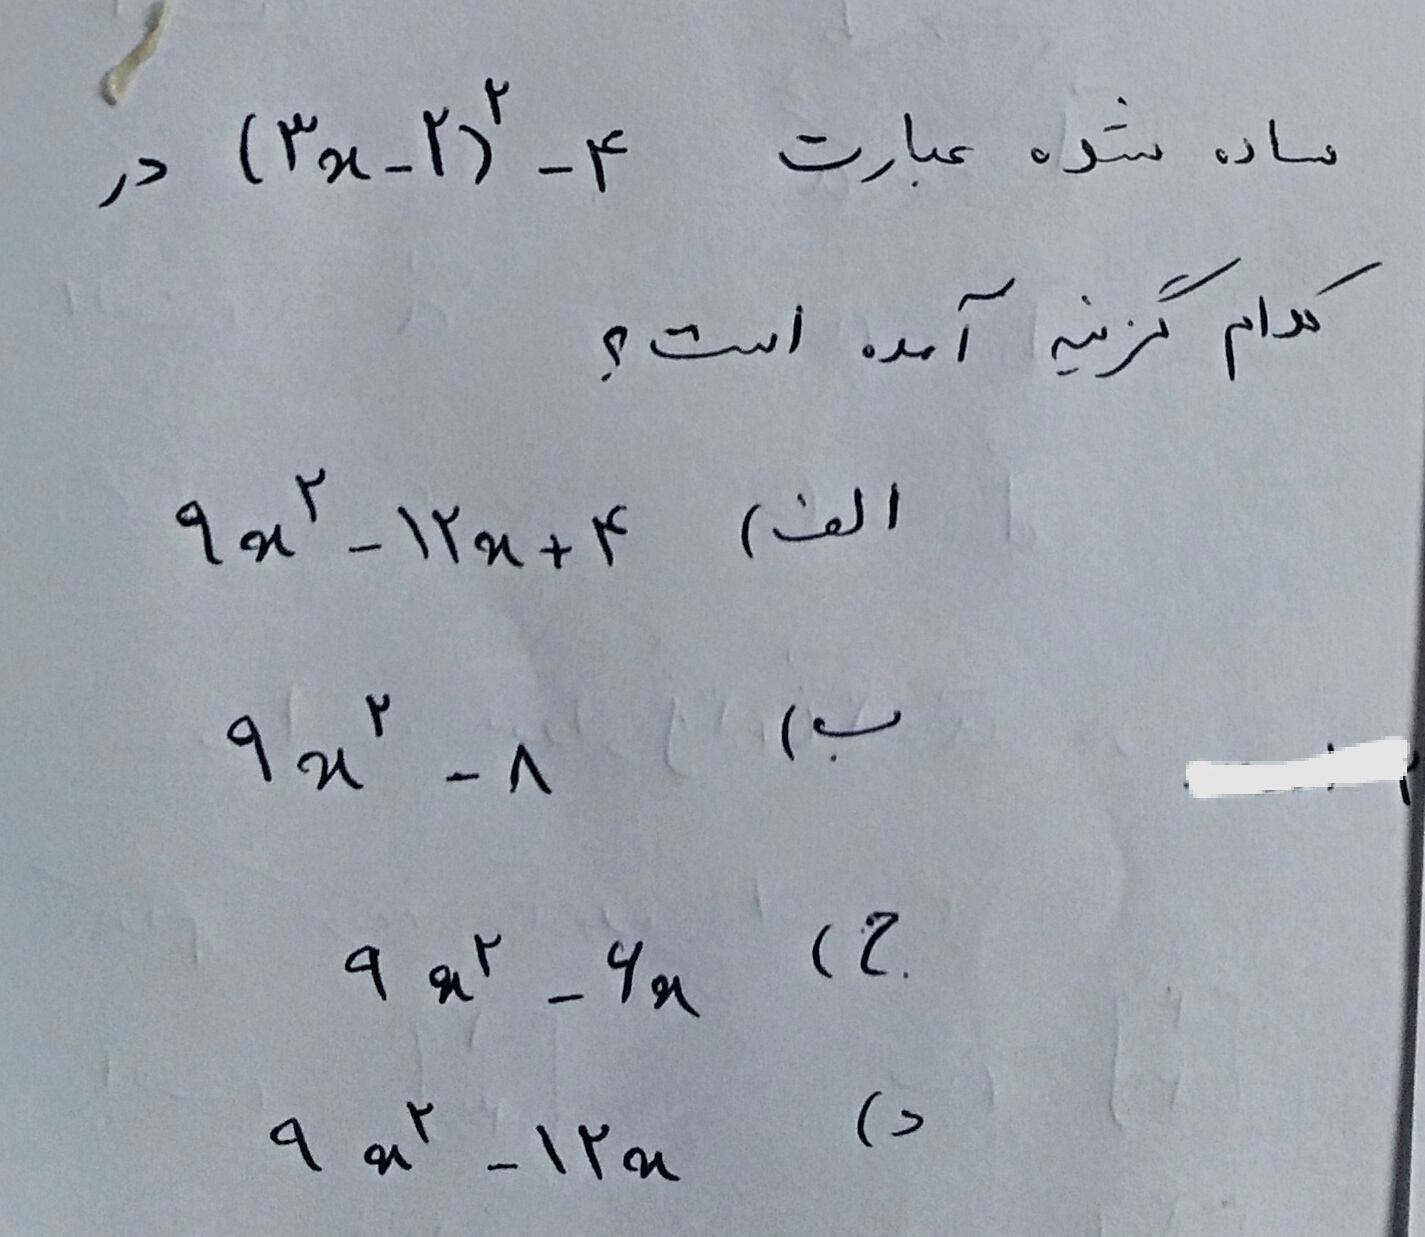 ساده شده عبارت (۳x-۲)^۲ - ۴ در
کدام گزینه آمده است؟
الف) ۹x^۲ - ۱۲x + ۴
ب) ۹x^۲ - ۸
ج) ۹x^۲ - ۶x
د) ۹x^۲ - ۱۲x